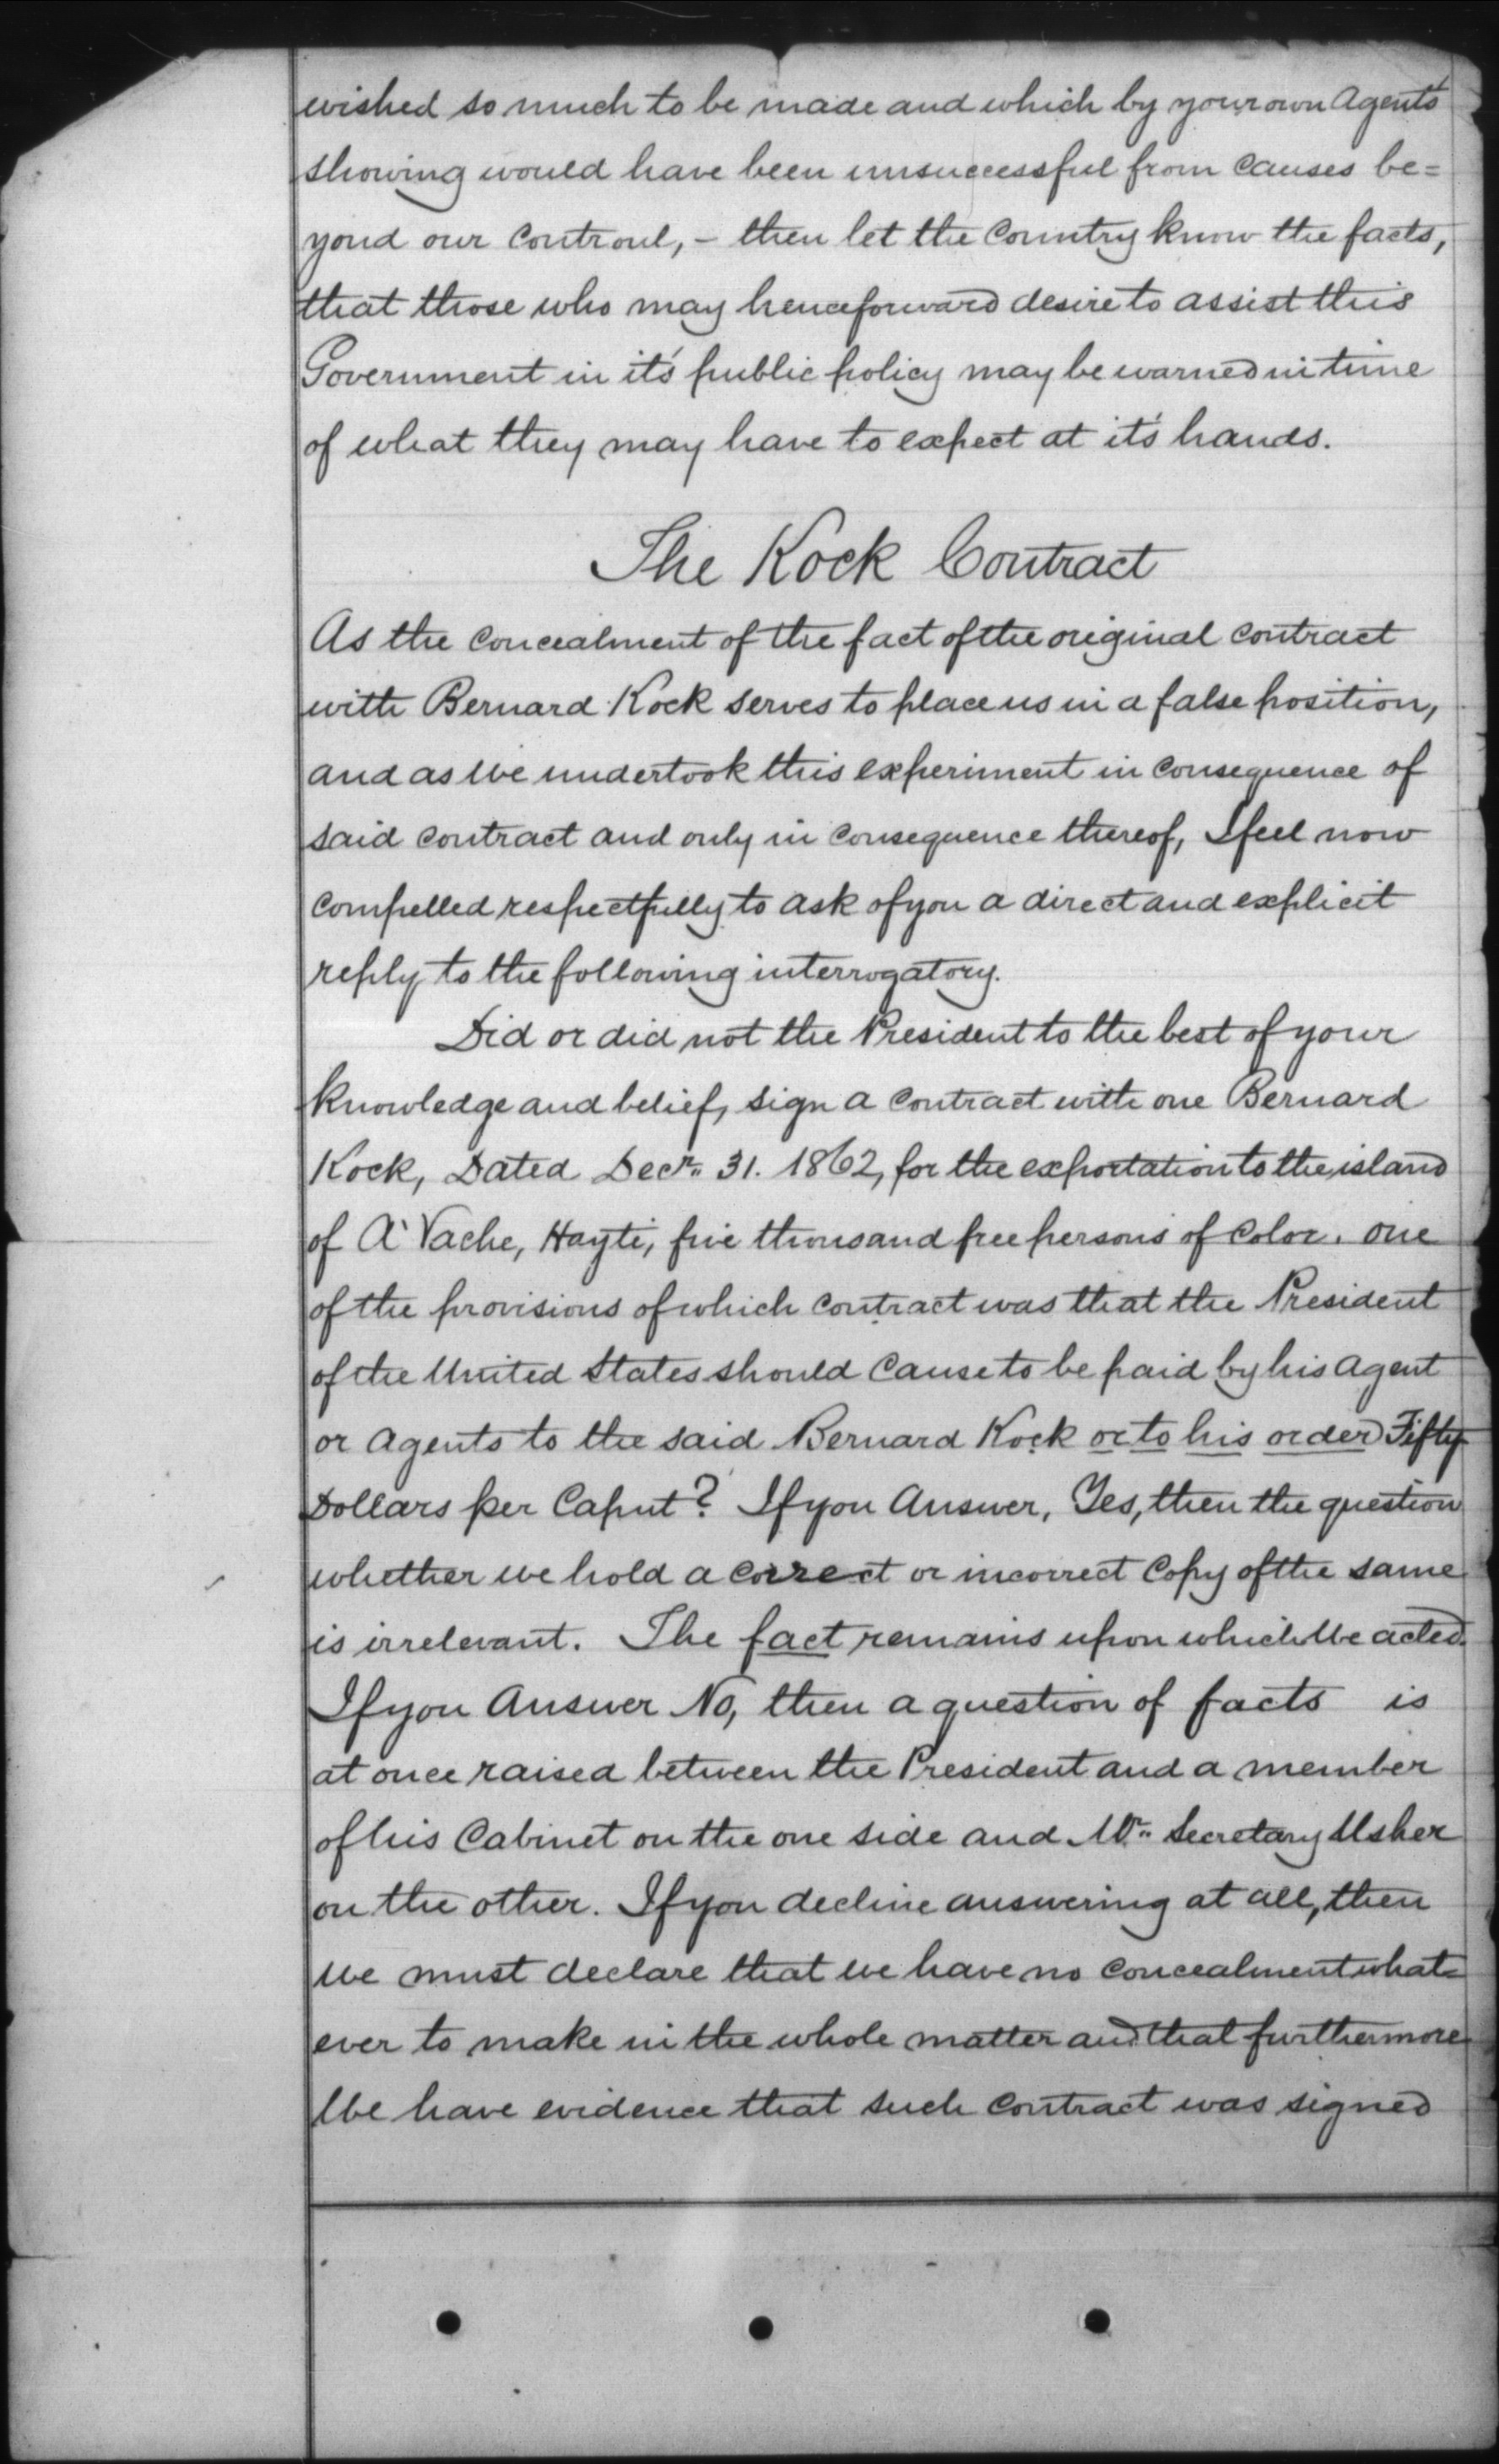 wished so much to be made and which by your own Agents
showing would have been unsuccessful from causes be=
yond our controul, - then let the Country know the facts,
that those who may henceforward desire to assist this
Government in it's public policy may be warned in time
of what they may have to expect at it's hands.
The Kock Contract
As the concealment of the fact of the original contract
with Bernard Kock serves to place us in a false position,
and as we undertook this experiment in consequence of
said contract and only in consequence thereof, I feel now
compelled respectfully to ask of you a direct and explicit
reply to the following interrogatory.
Did or did not the President to the best of your
knowledge and belief, sign a contract with one Bernard
Kock, Dated Decr. 31. 1862, for the exportation to the island
of A'Vache, Hayti, five thousand free persons of color. one
of the provisions of which contract was that the President
of the United States should cause to be paid by his agent
or agents to the said Bernard Kock or to his order Fifty
Dollars per Caput? If you Answer, Yes, then the question
whether we hold a correct or incorrect copy of the same
is irrelevant. The fact remains upon which We acted.
If you Answer No, then a question of facts is
at once raised between the President and a member
of his Cabinet on the one side and Mr. Secretary Usher
on the other. If you decline answering at all, then
we must declare that we have no concealment what=
ever to make in the whole matter and that furthermore
We have evidence that such contract was signed